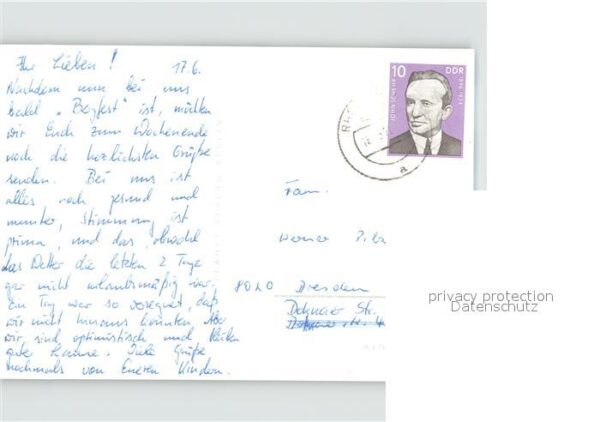 Ihr Lieben!
17.6.
Nachdem nun bei uns
bald "Bergfest" ist, möchten
wir Euch zum Wochenende
noch die herzlichsten Grüße
senden. Bei uns ist
alles noch gesund und
munter, Stimmung ist
prima, und das, obwohl
das Wetter die letzten 2 Tage
gar nicht urlaubsmäßig war.
Ein Tag war so verregnet, daß
wir nicht hinaus konnten. Aber
wir sind optimistisch und
gute Laune. Viele Grüße
nochmals von Eueren Kindern.
10 DDR
a
Fam.
Werner
8020 Dresden
Dohnaer Str.
privacy protection
Datenschutz